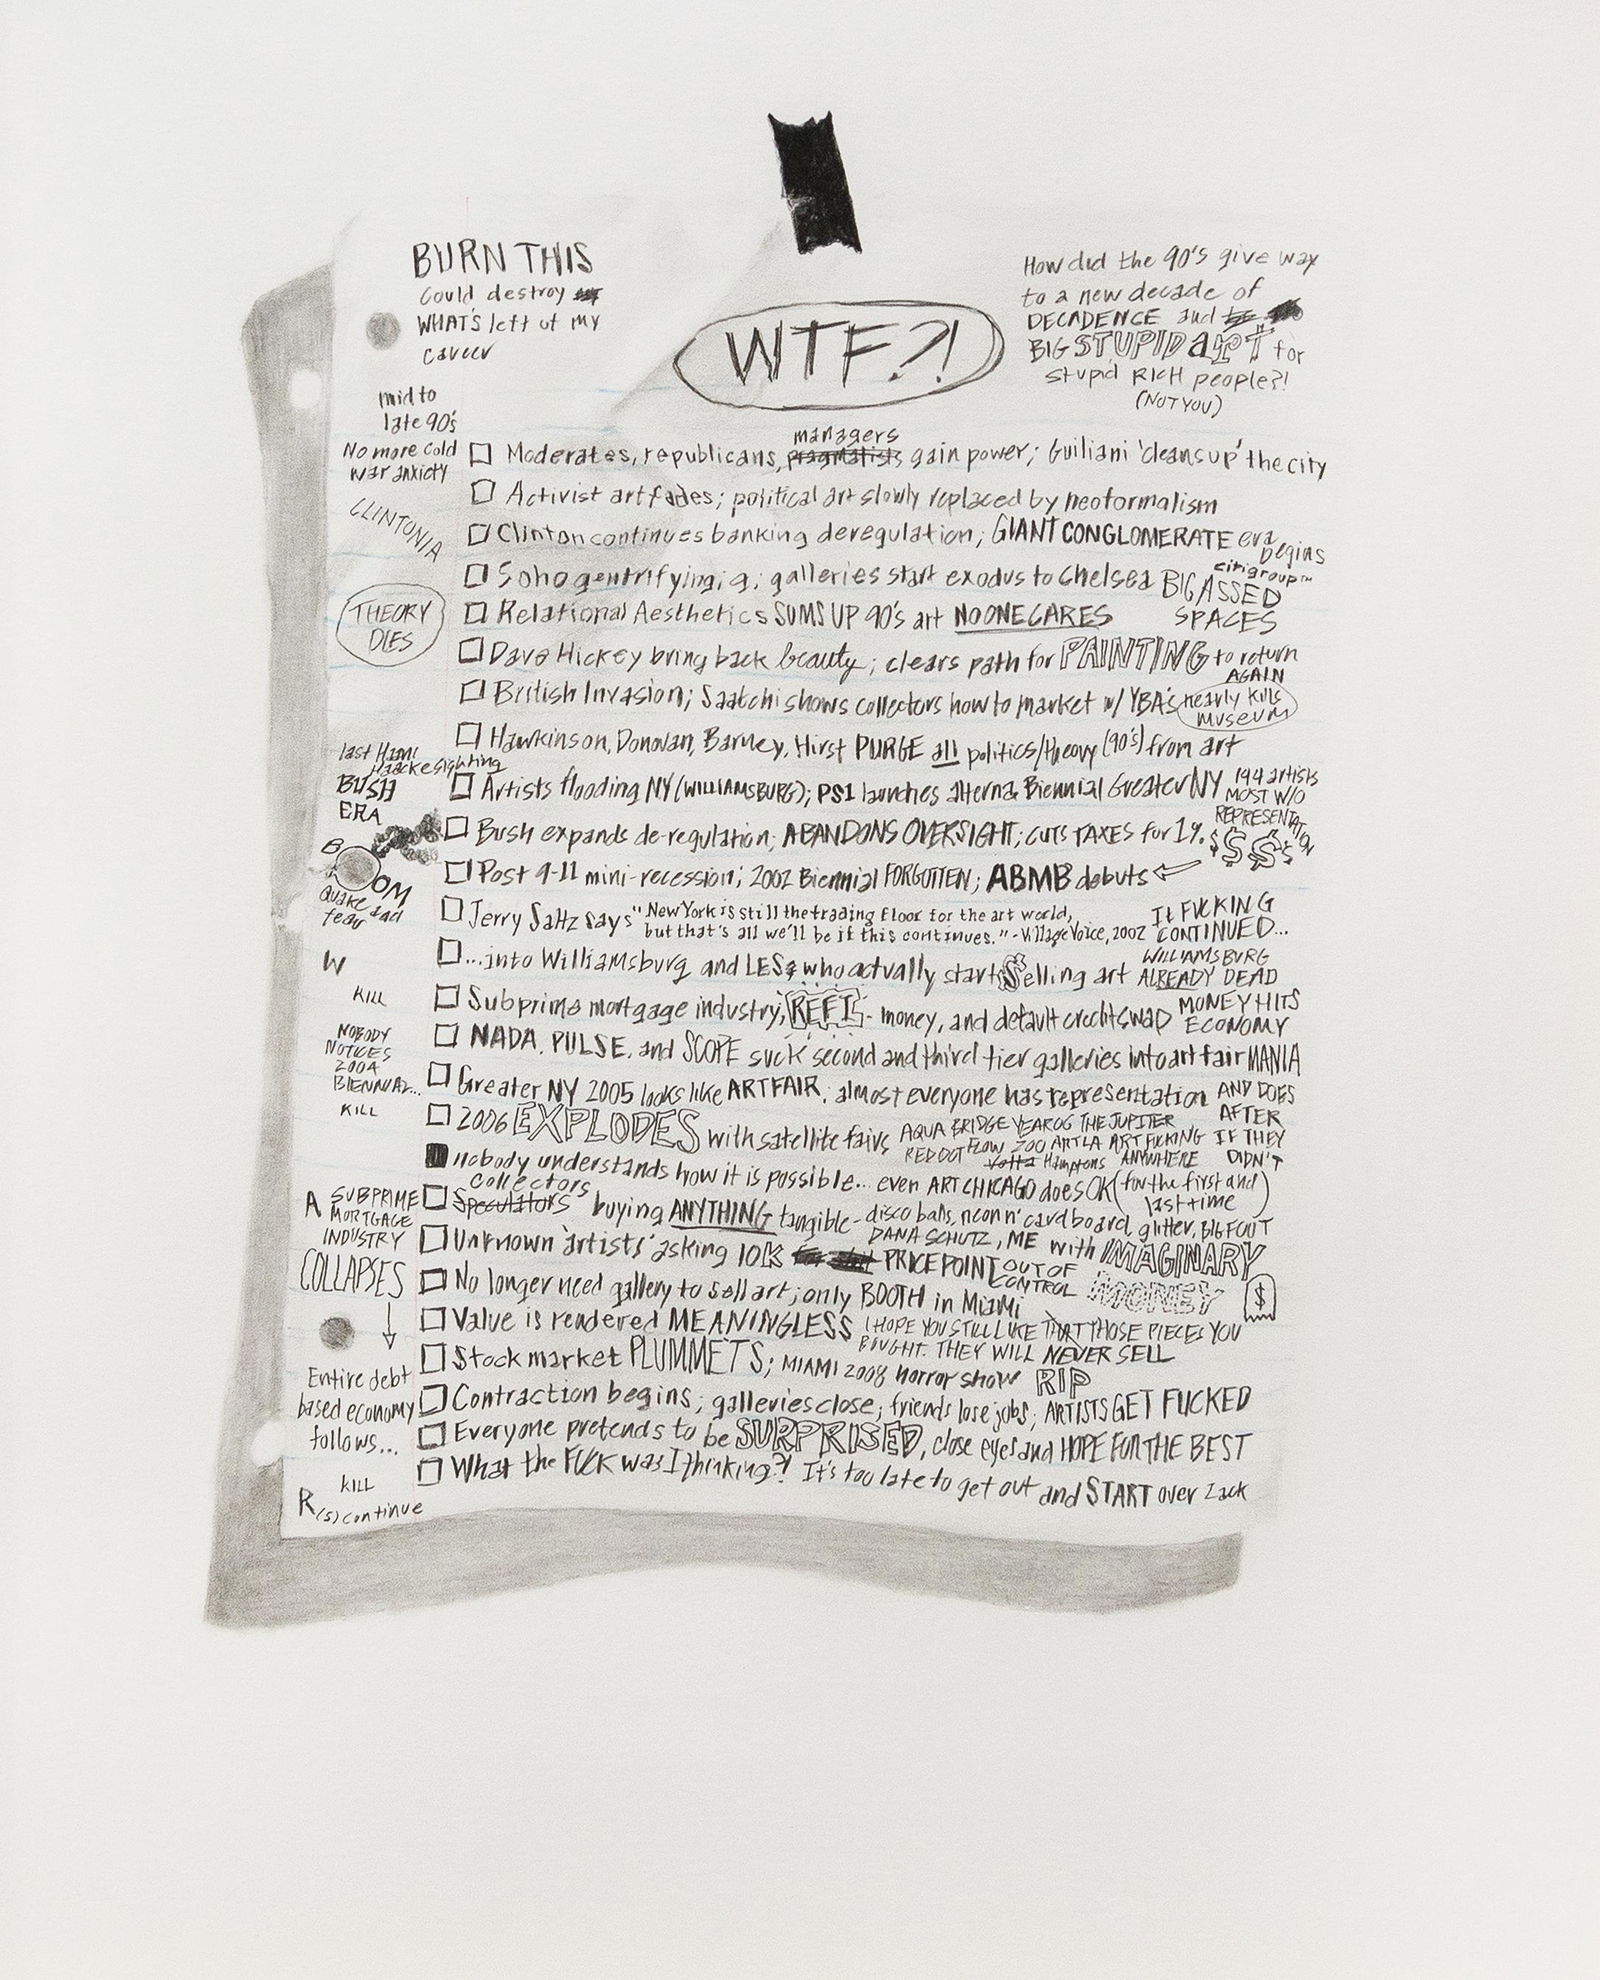 BURN THIS
Could destroy
WHAT'S left of MY
career
WTF?!
How did the 90's give way
to a new decade of
DECADENCE and
BIG STUPID aRT for
stupid RICH people?!
(NOT YOU)
mid to
late 90's
No more cold
war anxiety
CLINTONIA
THEORY
DIES
last Hans
Haacke sighting
BUSH
ERA
BOOM
Quake and
fear
W
KILL
NOBODY
NOTICES
2004
BIENNIAL...
KILL
A
SUBPRIME
MORTGAGE
INDUSTRY
COLLAPSES
Entire debt
based economy
follows...
KILL
R(s) continue
managers
Moderates, republicans, pragmatists gain power; Guiliani 'cleans up' the city
Activist art fades; political art slowly replaced by neoformalism
Clinton continues banking deregulation; GIANT CONGLOMERATE era begins
citigroup™
Soho gentrifying; galleries start exodus to Chelsea BIG ASSED
SPACES
Relational Aesthetics SUMS UP 90's art NO ONE CARES
Dave Hickey bring back beauty; clears path for PAINTING to return
AGAIN
British Invasion; Saatchi shows collectors how to market w/ YBA's nearly kills
museum
Hawkinson, Donovan, Barney, Hirst PURGE all politics/theory (90's) from art
Artists flooding NY (WILLIAMSBURG); PS1 launches alterna Biennial Greater NY 194 artists
MOST W/O
REPRESENTATION
Bush expands de-regulation; ABANDONS OVERSIGHT; CUTS TAXES for 1%. $$$$
Post 9-11 mini-recession; 2002 Biennial FORGOTTEN; ABMB debuts
Jerry Saltz says "New York is still the trading floor for the art world,
but that's all we'll be if this continues." - Village Voice, 2002
It FUCKING
CONTINUED...
...into Williamsburg and LES & who actually start $elling art
WILLIAMSBURG
ALREADY DEAD
Subprime mortgage industry, REFI - money, and default credit swap
MONEY HITS
ECONOMY
NADA, PULSE, and SCOPE suck second and third tier galleries into art fair MANIA
Greater NY 2005 looks like ART FAIR; almost everyone has representation
AND DOES
AFTER
IF THEY
DIDN'T
2006 EXPLODES with satellite fairs
AQUA BRIDGE YEAR06 THE JUPITER
RED DOT FLOW ZOO ARTLA ART FUCKING
Volta Hamptons ANYWHERE
nobody understands how it is possible... even ART CHICAGO does OK (for the first and
last time)
collectors
Speculators buying ANYTHING tangible - disco balls, neon n' cardboard, glitter, BIGFOOT
DANA SCHUTZ, ME with IMAGINARY
MONEY $
Unknown 'artists' asking 10K PRICE POINT OUT OF
CONTROL
No longer need gallery to sell art; only BOOTH in Miami
Value is rendered MEANINGLESS
I HOPE YOU STILL LIKE THAT THOSE PIECES YOU
BOUGHT. THEY WILL NEVER SELL
Stock market PLUMMETS; MIAMI 2008 horror show RIP
Contraction begins; galleries close; friends lose jobs; ARTISTS GET FUCKED
Everyone pretends to be SURPRISED, close eyes and HOPE FOR THE BEST
What the FUCK was I thinking?! It's too late to get out and START over Zack